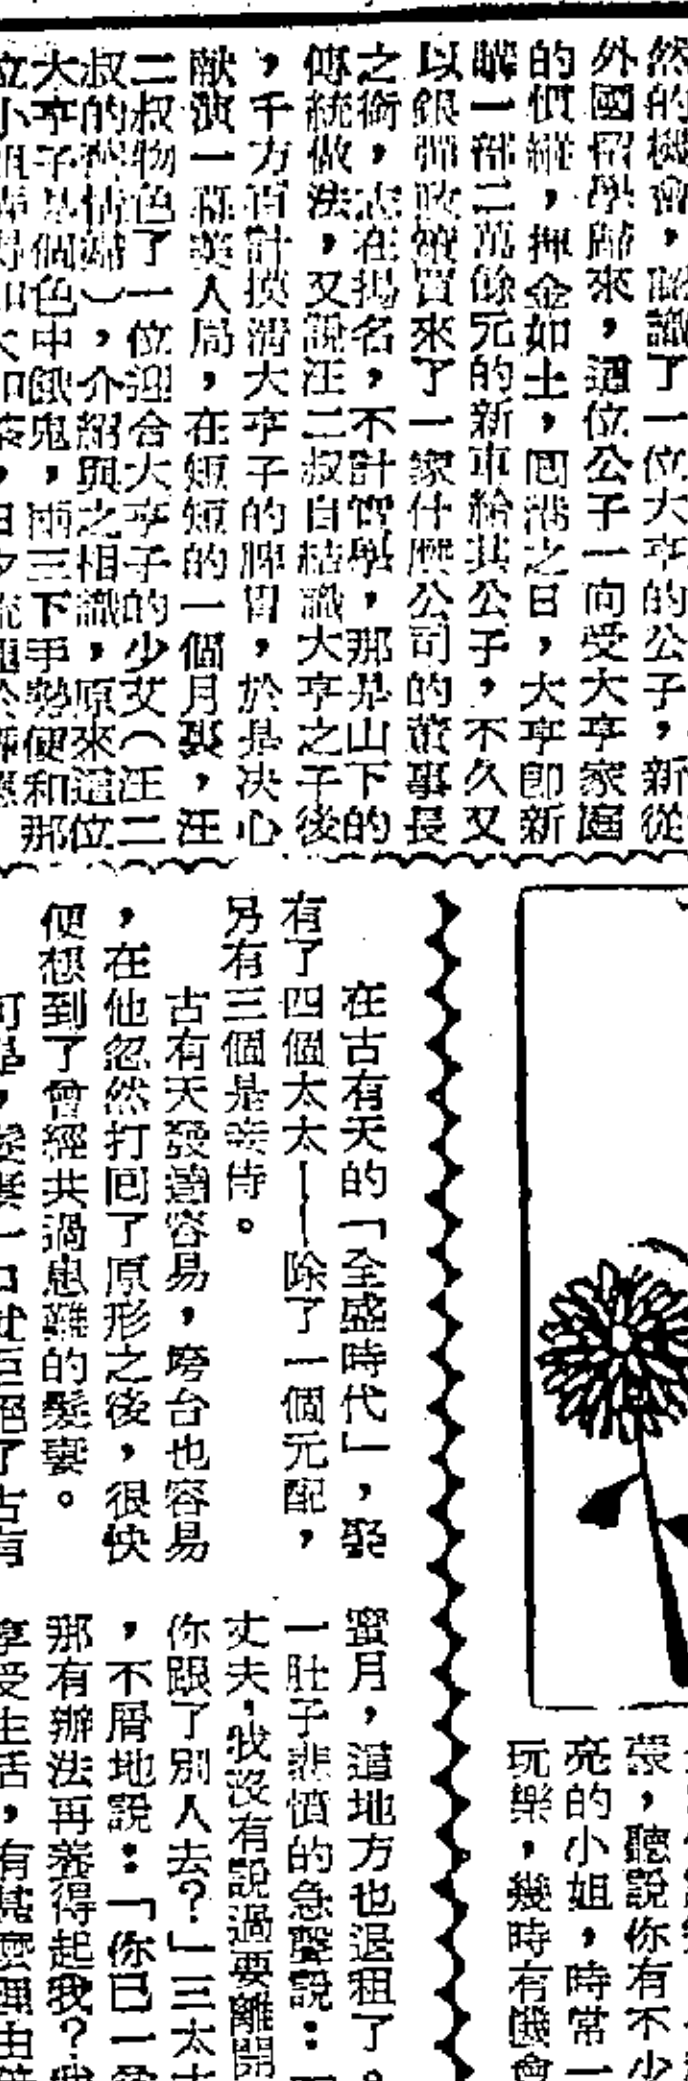 然的機會，認識了一位大亨的公子，新從
外國留學歸來，這位公子一向受大亨家庭
的慣縱，揮金如土，回港之日，大亨即新
購一部二萬餘元的新車給其公子，不久又
以銀彈政策買來了一家什麼公司的董事長
之銜，志在揚名，不計實學，那是山下的
傳統做法，又說汪二叔自結識大亨之子後
，千方百計摸清大亨子的脾胃，於是决心
献演一幕美人局，在短短的一個月裏，汪
二叔物色了一位迎合大亨子的少艾（汪二
叔的舊情婦），介紹與之相識，原來這位
大亨子是個色中餓鬼，兩三下手勢便和那
在古有天的「全盛時代」，娶
有了四個太太——除了一個元配，
另有三個是妾侍。
古有天發達容易，垮台也容易
，在他忽然打回了原形之後，很快
便想到了曾經共過患難的髮妻。
可是，髮妻一口就拒絕了古有
張，聽說你有不少
亮的小姐，時常一
玩樂，幾時有機會
蜜月，這地方也退租了。
一肚子悲憤的急聲說：「
丈夫，我沒有說過要離開
你跟了別人去？」三太太
，不屑地說：「你已一
那有辦法再養得起我？我
享受生活，有甚麼理由